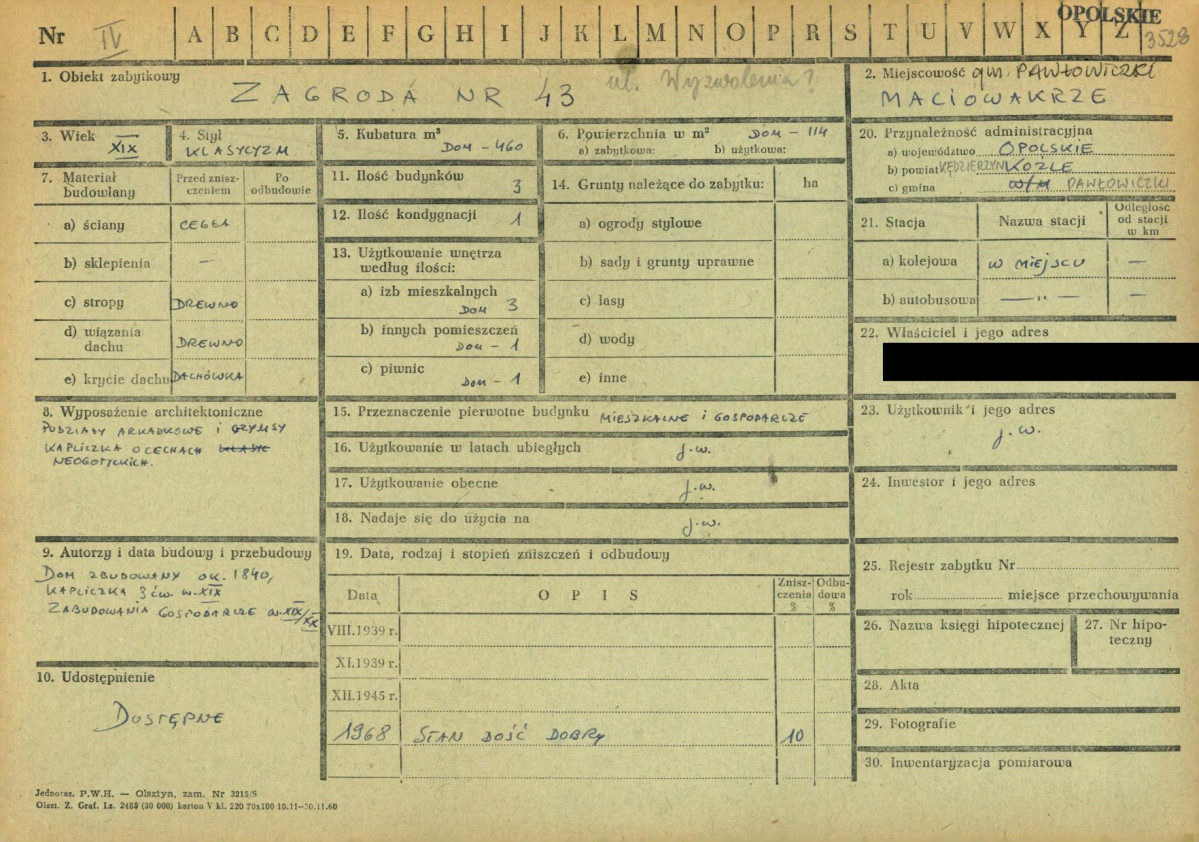 OPOLSKIE
Nr IV A B C D E F G H I J K L M N O P R S T U V W X Y Z 3528
1. Obiekt zabytkowy
ZAGRODA NR 43
ul. Wyzwolenia?
2. Miejscowość gm. PAWŁOWICZKI
MACIOWAKRZE
3. Wiek
XIX
4. Styl
KLASYCYZM
5. Kubatura m³
DOM – 460
6. Powierzchnia w m² DOM – 114
a) zabytkowa: b) użytkowa:
20. Przynależność administracyjna
a) województwo OPOLSKIE
b) powiat KĘDZIERZYN KOŹLE
c) gmina w/m PAWŁOWICZKI
7. Materiał budowlany
Przed znisz-
czeniem
Po
odbudowie
a) ściany CEGŁA
b) sklepienia —
c) stropy DREWNO
d) wiązania
dachu DREWNO
e) krycie dachu DACHÓWKA
11. Ilość budynków 3
12. Ilość kondygnacji 1
13. Użytkowanie wnętrza
według ilości:
a) izb mieszkalnych
DOM 3
b) innych pomieszczeń
DOM – 1
c) piwnic
DOM – 1
14. Grunty należące do zabytku: ha
a) ogrody stylowe
b) sady i grunty uprawne
c) lasy
d) wody
e) inne
21. Stacja Nazwa stacji
Odległość
od stacji
w km
a) kolejowa W MIEJSCU —
b) autobusowa — „ — —
22. Właściciel i jego adres
8. Wyposażenie architektoniczne
PODZIAŁY ARKADKOWE I GZYMSY
KAPLICZKA O CECHACH KLASYC
NEOGOTYCKICH.
15. Przeznaczenie pierwotne budynku MIESZKALNE I GOSPODARCZE
16. Użytkowanie w latach ubiegłych j.w.
17. Użytkowanie obecne j.w.
18. Nadaje się do użycia na j.w.
23. Użytkownik i jego adres
j.w.
24. Inwestor i jego adres
9. Autorzy i data budowy i przebudowy
DOM ZBUDOWANY OK. 1840,
KAPLICZKA 3 ćw. w. XIX
ZABUDOWANIA GOSPODARCZE w. XIX/XX
10. Udostępnienie
DOSTĘPNE
19. Data, rodzaj i stopień zniszczeń i odbudowy
Data OPIS
Znisz-
czenia
%
Odbu-
dowa
%
VIII.1939 r.
XI.1939 r.
XII.1945 r.
1968 STAN DOŚĆ DOBRY 10
25. Rejestr zabytku Nr
rok miejsce przechowywania
26. Nazwa księgi hipotecznej
27. Nr hipo-
teczny
28. Akta
29. Fotografie
30. Inwentaryzacja pomiarowa
Jednoraz. P.W.H. — Olsztyn, zam. Nr 3215/S
Olszt. Z. Graf. Lz. 2485 (30 000) karton V kl. 220 70x100 10.11—30.11.60